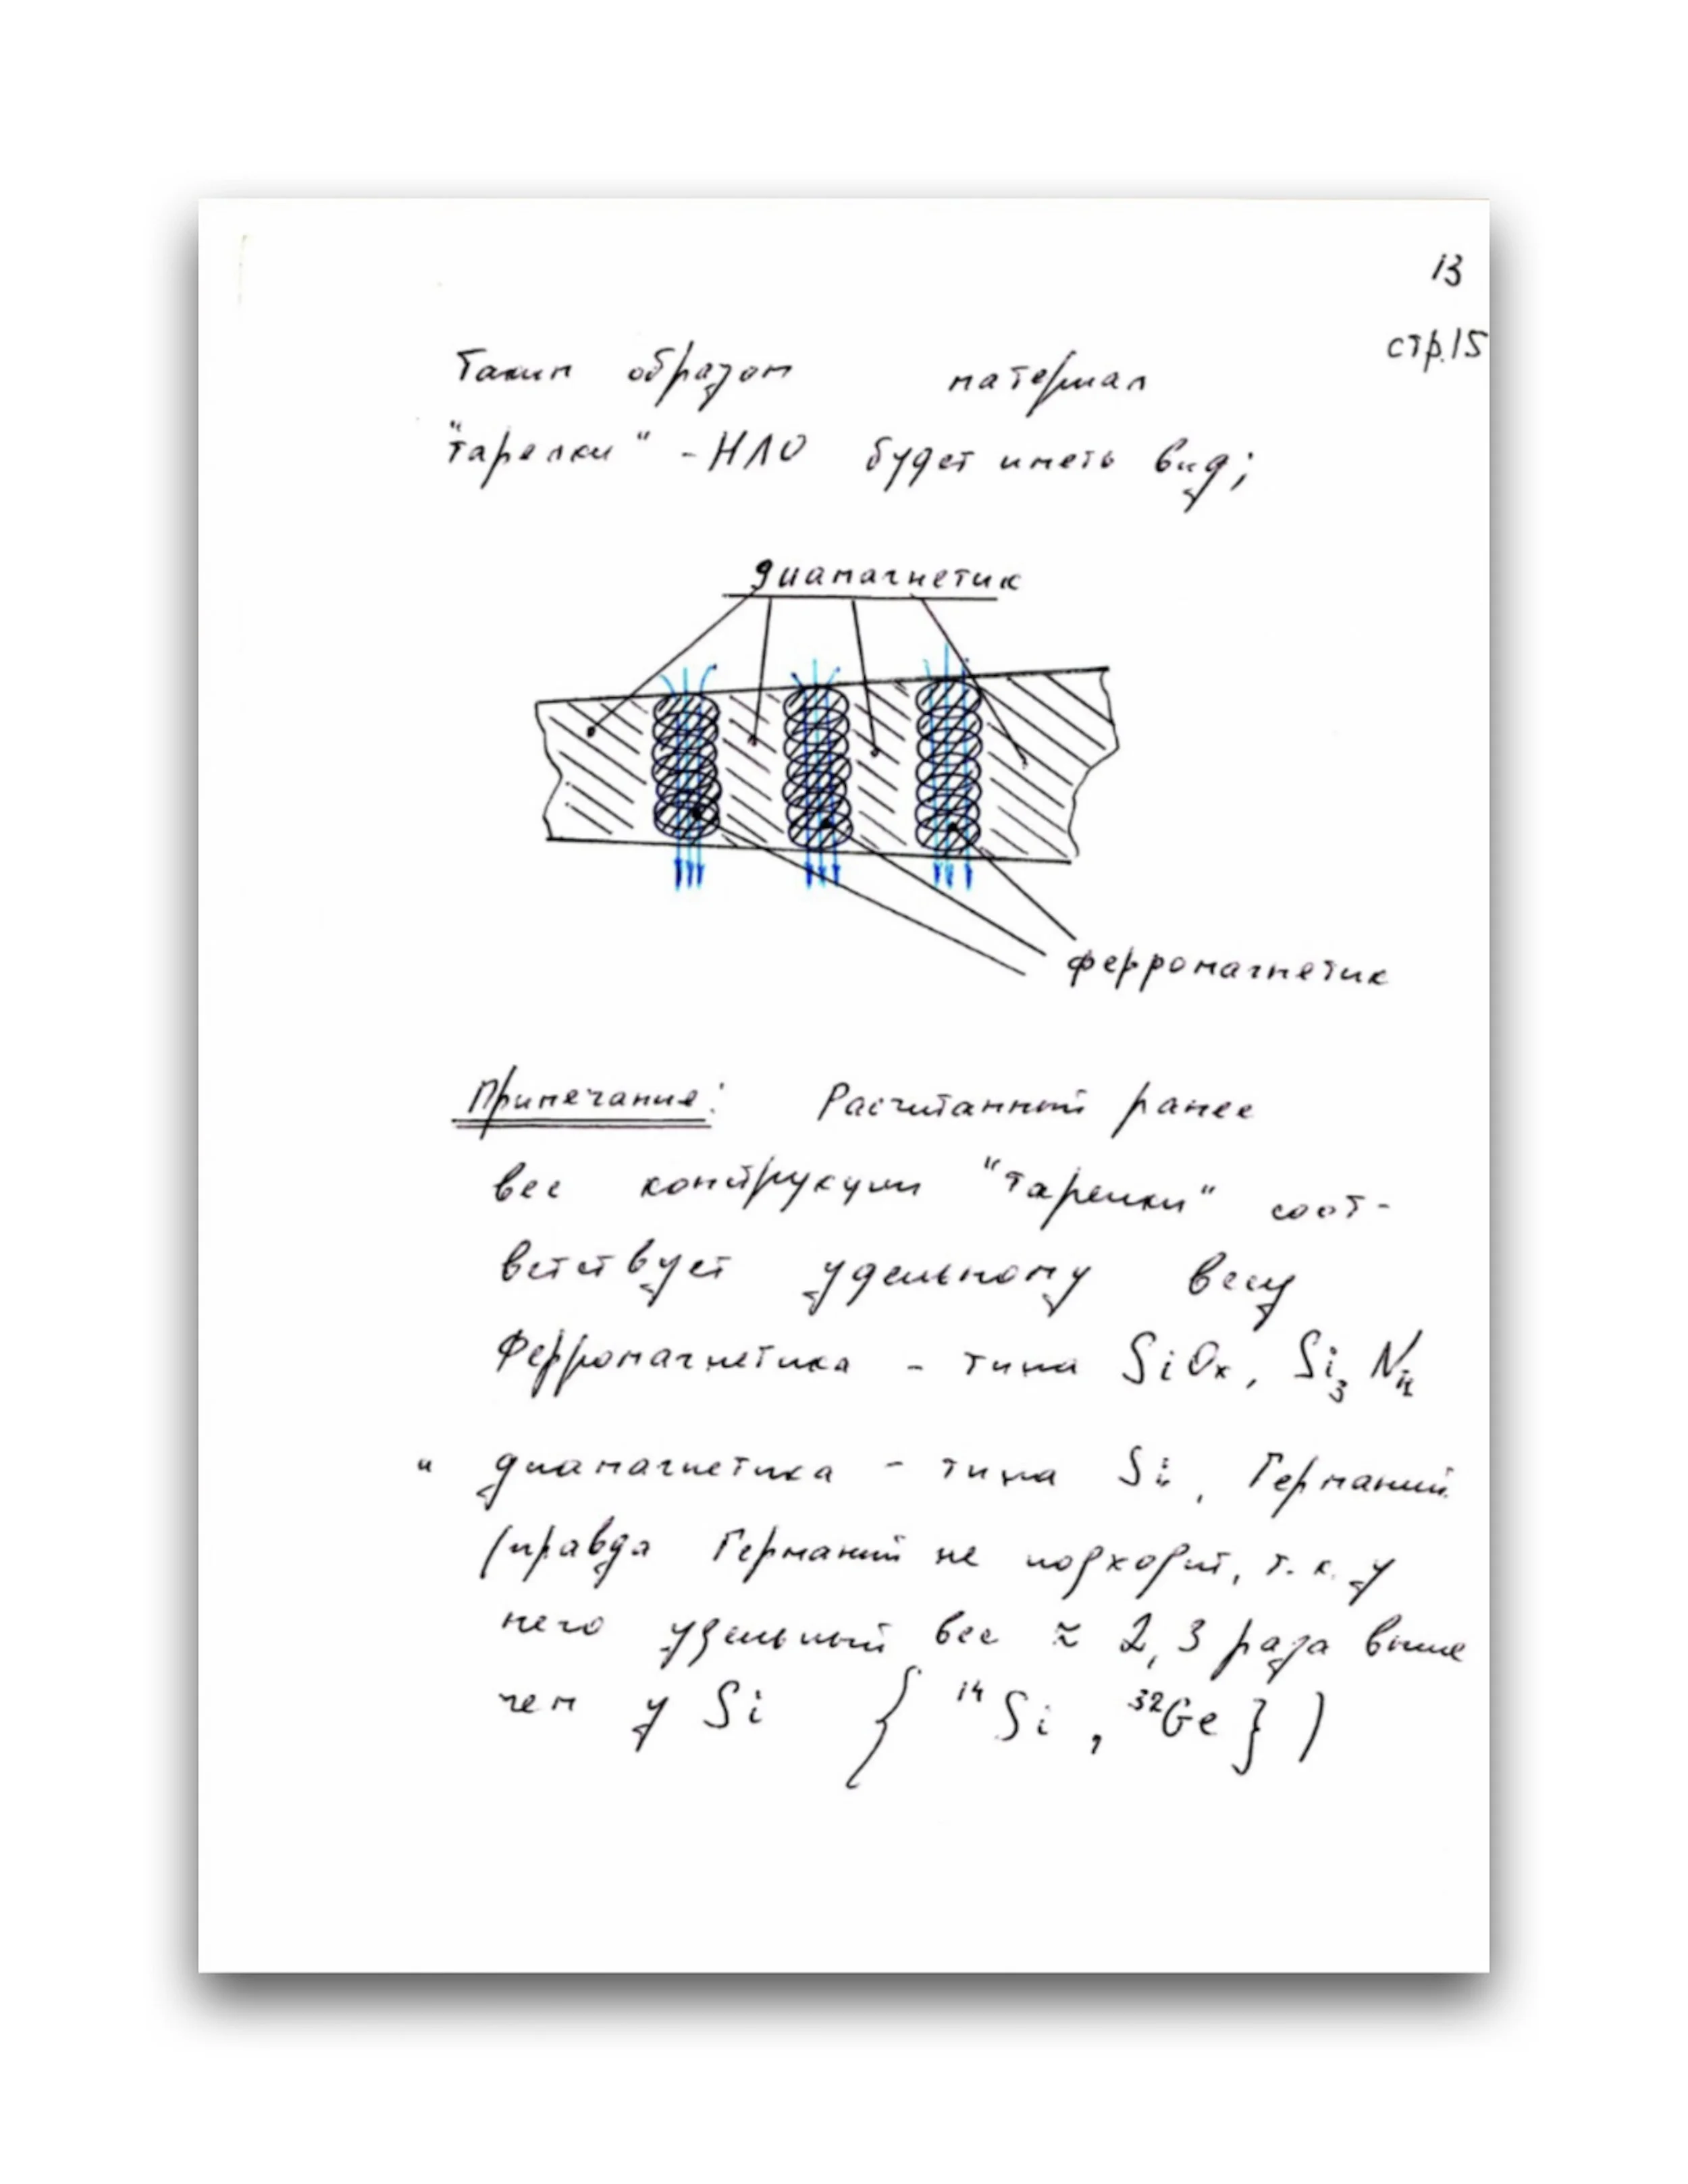 13
стр.15
Таким образом материал
"тарелки" - НЛО будет иметь вид;
диамагнетик
ферромагнетик
Примечание: Расчитанный ранее
вес конструкции "тарелки" соот-
ветствует удельному весу
Ферромагнетика - типа SiOx, Si₃ N₄
и диамагнетика - типа Si, Германий
(правда Германий не подходит, т.к. у
него удельный вес ≈ 2,3 раза выше
чем у Si { ¹⁴Si, ³²Ge } )